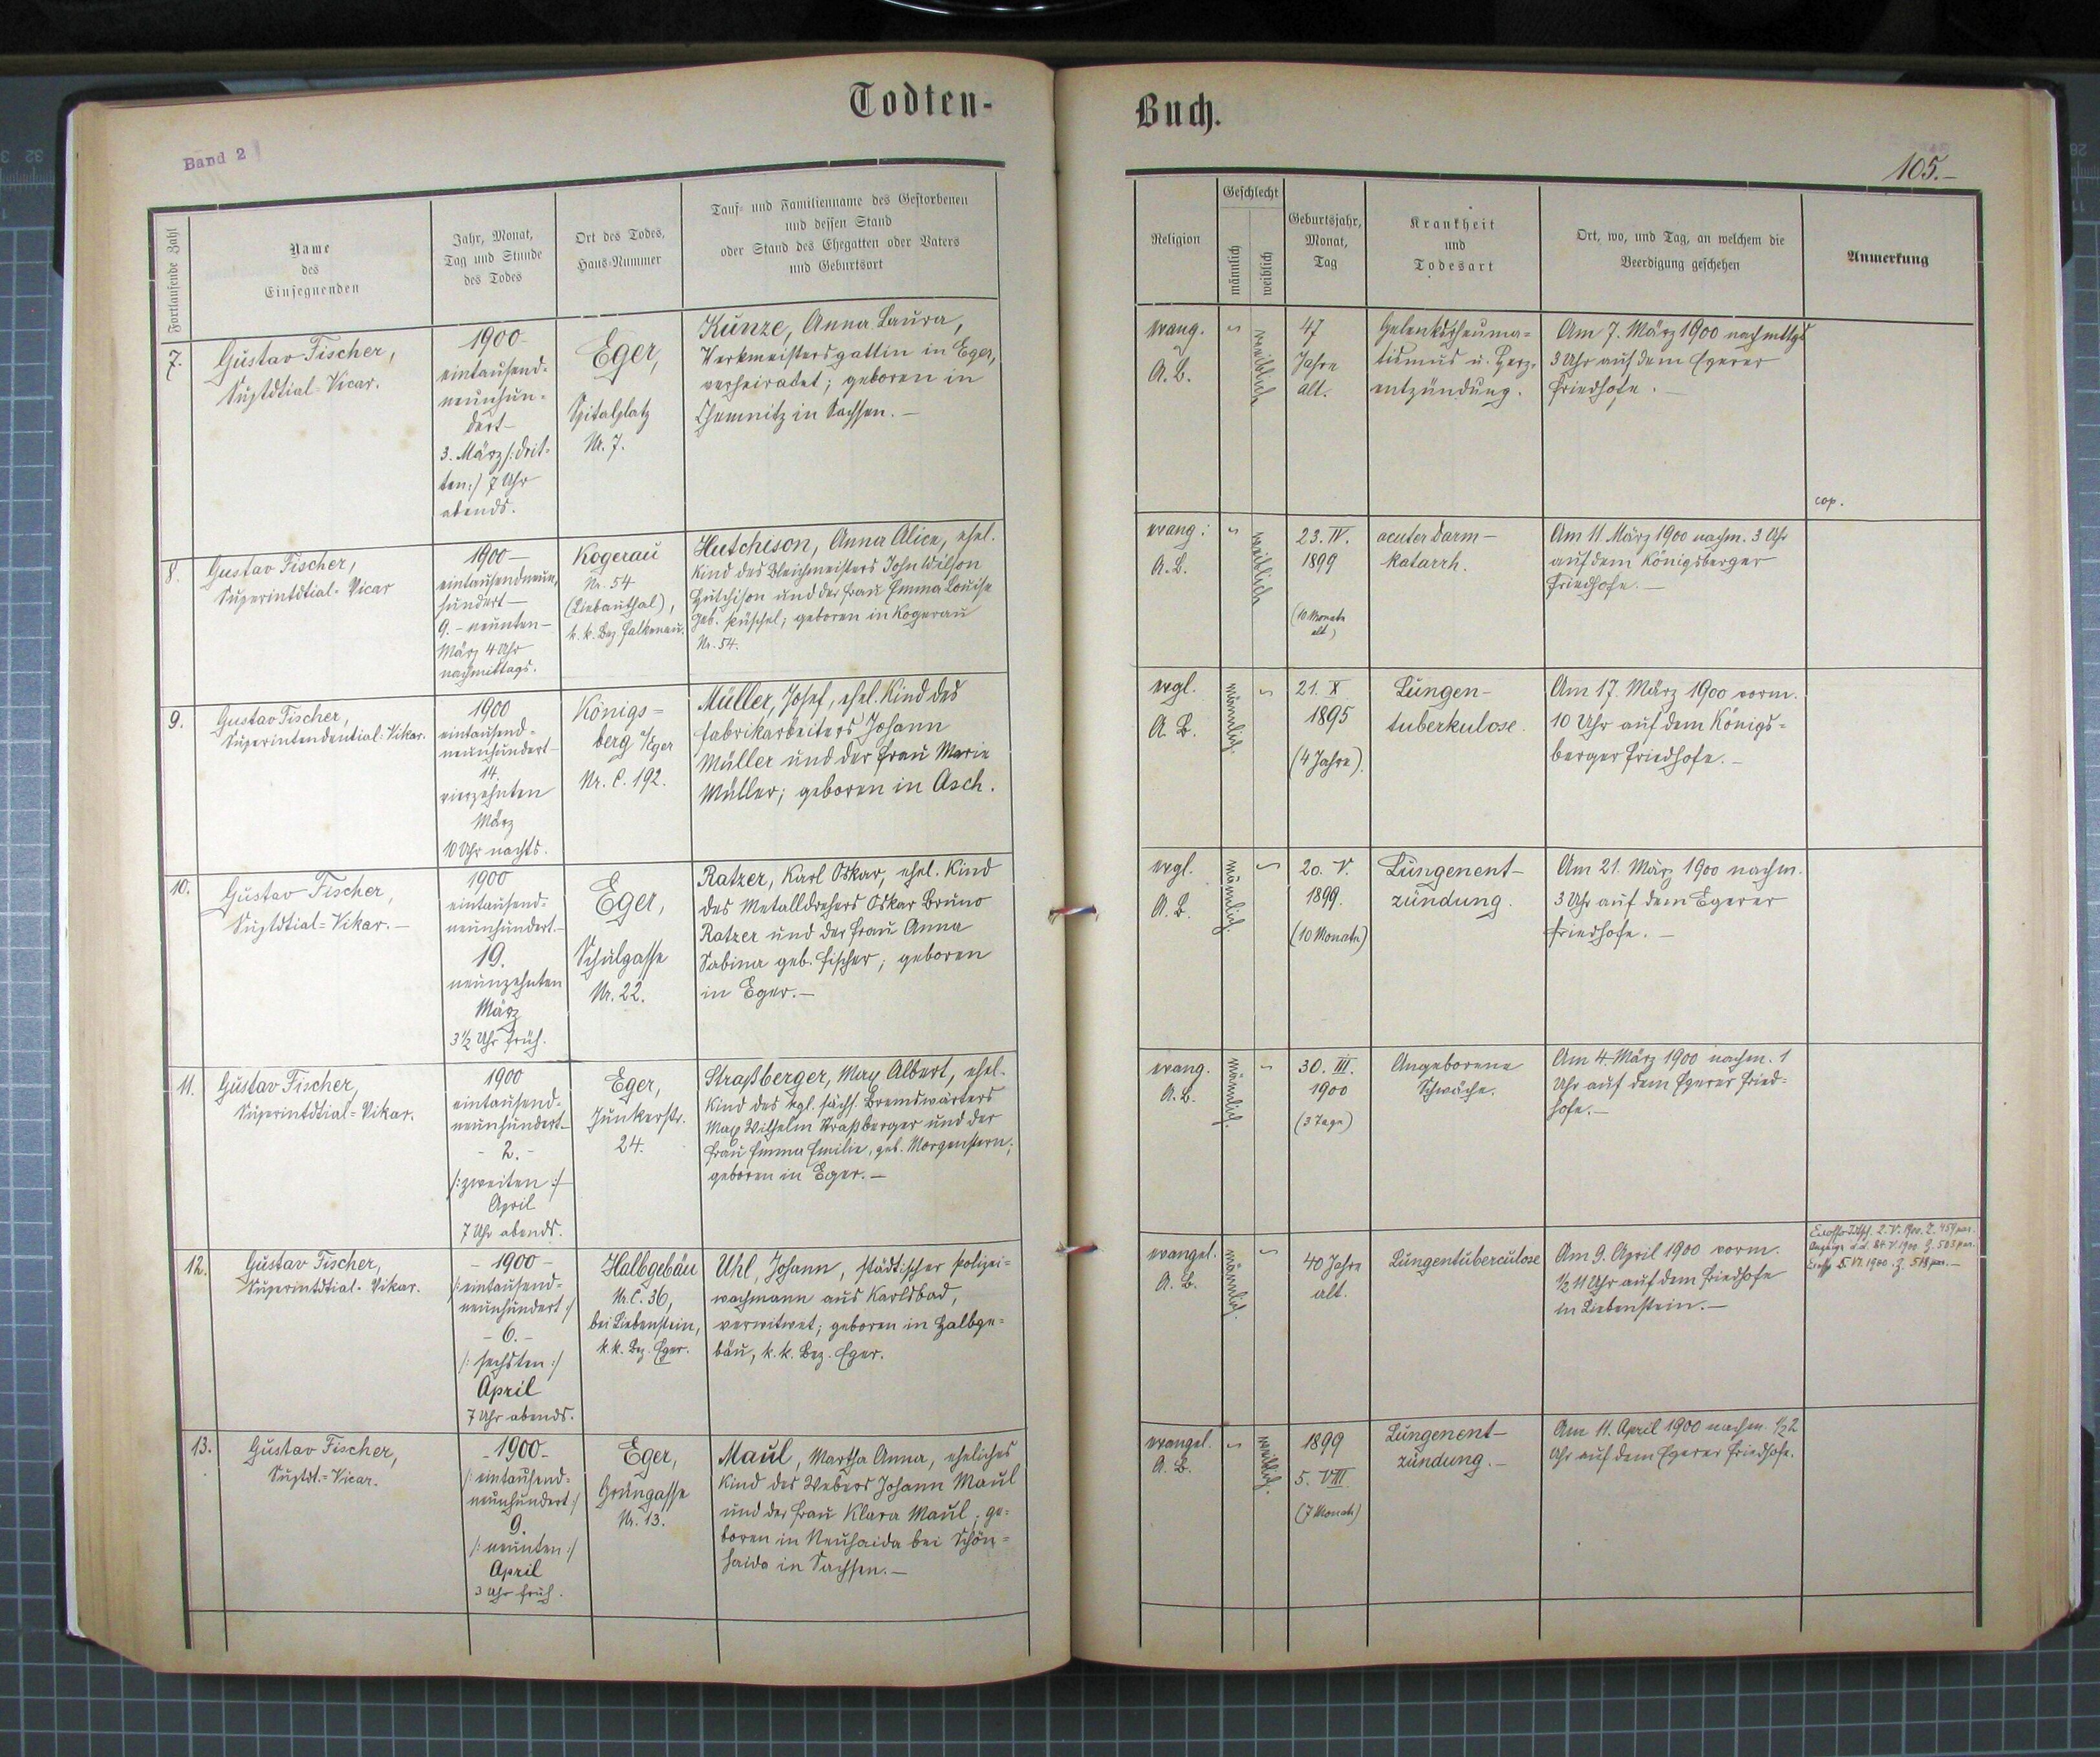 Todten-
Buch.
Band 2
105.-
Fortlaufende Zahl
Name
des
Einsegnenden
Jahr, Monat,
Tag und Stunde
des Todes
Ort des Todes,
Haus-Nummer
Tauf- und Familienname des Gestorbenen
und dessen Stand
oder Stand des Ehegatten oder Vaters
und Geburtsort
Religion
Geschlecht
männlich
weiblich
Geburtsjahr,
Monat,
Tag
Krankheit
und
Todesart
Ort, wo, und Tag, an welchem die
Beerdigung geschehen
Anmerkung
7.
Gustav Fischer,
Suptdtial-Vicar.
1900-
eintausend-
neunhun-
dert-
3. März /:drit-
ten:/ 7 Uhr
abends.
Eger,
Spitalplatz
Nr. 7.
Kunze, Anna Laura,
Werkmeistersgattin in Eger,
verheiratet; geboren in
Chemnitz in Sachsen.-
evang.
A.B.
weiblich
47
Jahre
alt.
Gelenksrheuma-
tismus u. Herz-
entzündung.
Am 7. März 1900 nachmttgs
3 Uhr auf dem Egerer
Friedhofe.-
cop.
8.
Gustav Fischer,
Superintdtial-Vicar
1900-
eintausendneun-
hundert-
9.-neunten-
März 4 Uhr
nachmittags.
Kogerau
Nr. 54
(Liebauthal),
k.k. Bez. Falkenau.
Hutchison, Anna Alice, ehel.
Kind des Bleichmeisters John Wilson
Hutchison und der Frau Emma Louise
geb. Püschel; geboren in Kogerau
Nr. 54.
evang.
A.B.
weiblich
23. IV.
1899
(10 Monate
alt)
acuter Darm-
katarrh.
Am 11. März 1900 nachm. 3 Uhr
auf dem Königsberger
Friedhofe.-
9.
Gustav Fischer,
Superintendential-Vikar.
1900
eintausend-
neunhundert-
14.
vierzehnten
März
10 Uhr nachts.
Königs-
berg a/Eger
Nr. C. 192.
Müller, Josef, ehel. Kind des
Fabrikarbeiters Johann
Müller und der Frau Marie
Müller; geboren in Asch.
evgl.
A.B.
männlich.
21. X
1895
(4 Jahre).
Lungen-
tuberkulose.
Am 17. März 1900 vorm.
10 Uhr auf dem Königs-
berger Friedhofe.-
10.
Gustav Fischer,
Suptdtial-Vikar.-
1900
eintausend-
neunhundert-
19.
neunzehnten
März
3½ Uhr früh.
Eger,
Schulgasse
Nr. 22.
Ratzer, Karl Oskar, ehel. Kind
des Metalldrehers Oskar Bruno
Ratzer und der Frau Anna
Sabina geb. Fischer; geboren
in Eger.-
evgl.
A.B.
männlich.
20. V.
1899.
(10 Monate)
Lungenent-
zündung.
Am 21. März 1900 nachm.
3 Uhr auf dem Egerer
Friedhofe.-
11.
Gustav Fischer,
Superintdtial-Vikar.
1900
eintausend-
neunhundert-
-2.-
/:zweiten:/
April
7 Uhr abends.
Eger,
Junkerstr.
24.
Straßberger, Max Albert, ehel.
Kind des kgl. sächs. Bremswärters
Max Wilhelm Straßberger und der
Frau Emma Emilie, geb. Morgenstern;
geboren in Eger.-
evang.
A.B.
männlich.
30. III.
1900
(3 Tage)
Angeborene
Schwäche.
Am 4. März 1900 nachm. 1
Uhr auf dem Egerer Fried-
hofe.-
12.
Gustav Fischer,
Superintdtial-Vikar.
-1900-
/:eintausend-
neunhundert:/
-6.-
/:sechsten:/
April
7 Uhr abends.
Halbgebäu
Nr.C. 36,
bei Liebenstein,
k.k. Bez. Eger.
Uhl, Johann, städtischer Polizei-
wachmann aus Karlsbad,
verwitwet; geboren in Halbge-
bäu, k.k. Bez. Eger.
evangel.
A.B.
männlich.
40 Jahre
alt.
Lungentuberculose
Am 9. April 1900 vorm.
½ 11 Uhr auf dem Friedhofe
in Liebenstein.-
2. V. 1900. Z. 459
Anzeige V. 1900 Z. 503
VI. 1900. Z. 518
13.
Gustav Fischer,
Suptdt.-Vicar.
-1900-
/:eintausend-
neunhundert:/
9.
/:neunten:/
April
3 Uhr früh.
Eger,
Grüngasse
Nr. 13.
Maul, Martha Anna, eheliches
Kind des Webers Johann Maul
und der Frau Klara Maul; ge-
boren in Neuhaida bei Schön-
haida in Sachsen.-
evangel.
A.B.
weiblich.
1899
5. VIII.
(7 Monate)
Lungenent-
zündung.-
Am 11. April 1900 nachm. ½2
Uhr auf dem Egerer Friedhofe.